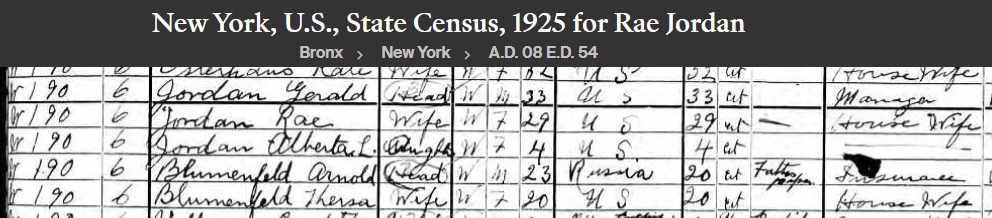 New York, U.S., State Census, 1925 for Rae Jordan
Bronx > New York > A.D. 08 E.D. 54
190 6 Kate Wife W F 62 U S 52 cit House Wife
190 6 Jordan Gerald Head W M 33 U S 33 cit Manager
190 6 Jordan Rae Wife W F 29 U S 29 cit — House Wife
190 6 Jordan Alberta L. Daught W F 4 U S. 4 cit
190 6 Blumenfeld Arnold Head W M 23 Russia 20 cit Father Insurance
190 6 Blumenfeld Theresa Wife W F 20 U S 20 cit House Wife